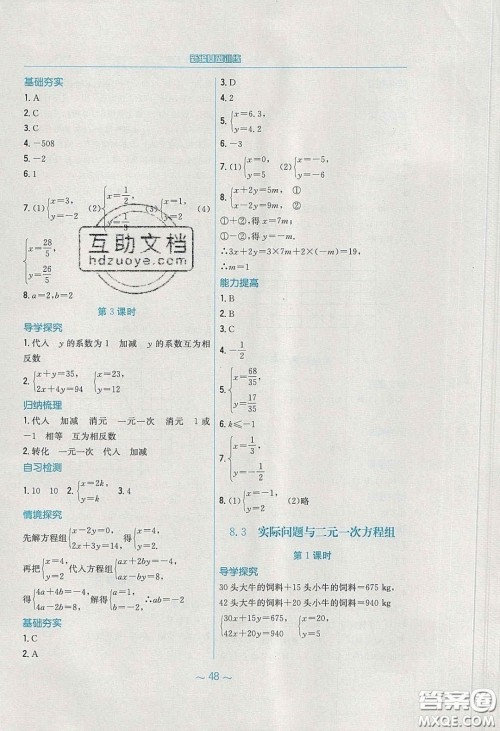 新课程基础训练
基础夯实
1. A
2. C
3. C
4. -508
5. -2
6. 1
7. (1) {x=3, y=-2 (2) (3) (4)
{x=28/5, y=26/5
8. a=2, b=2
第 3 课时
导学探究
1. 代入 y 的系数为 1 加减 y 的系数互为相
反数
2. {x+y=35, 2x+4y=94 {x=23, y=12
归纳梳理
1. 代入 加减 消元 一元一次 消元 1 或
-1 相等 互为相反数
2. 转化 一元一次 代入 加减
自习检测
1. 10 10 2. {x=2k, y=k 3. 4
情境探究
先解方程组 {x-2y=0, x-y=2 得 {x=4, y=2
再把 {x=4, y=2 代入方程组 {ax+2by=-4, ax+by=-2
得 {4a+4b=-4, 4a+2b=-2 解得 {a=0, b=-1
基础夯实
1. C
2. A
3. D
4. 2
5. {x=6.3,
6. -3
7. (1) {x=0, y=5 (2) {x=-5, y=-6
8. {x+2y=5m, ① x-2y=9m, ②
①+②, 得 x=7m,
①-②, 得 y=-m,
∴3x+2y=3×7m+2×(-m)=19,
∴m=1
能力提高
1. B
2. B
3. C
4. -1/2
5. {x=68/35, y=17/35
6. k≤-1
7. {x=1/3, y=-1/2
8. (1) {x=1, y=2 (2)略
8.3 实际问题与二元一次方程组
第 1 课时
导学探究
30 头大牛的饲料+15 头小牛的饲料=675 kg,
42 头大牛的饲料+20 头小牛的饲料=940 kg
{30x+15y=675, 42x+20y=940
~ 48 ~
互助文档
hdzuoye.com
答案圈
MXQE.COM